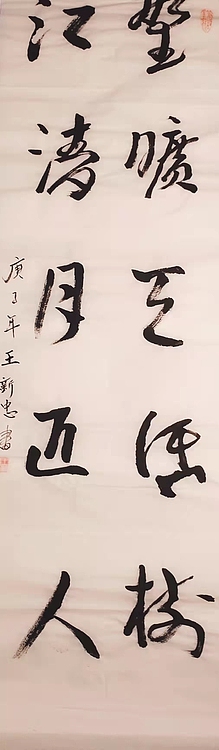 野曠天低樹
江清月近人
庚子年王新忠書